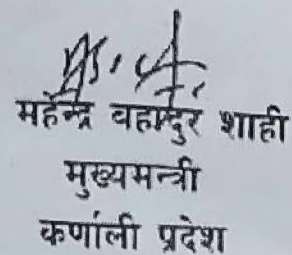 महेन्द्र वहादुर शाही
मुख्यमन्त्री
कर्णाली प्रदेश